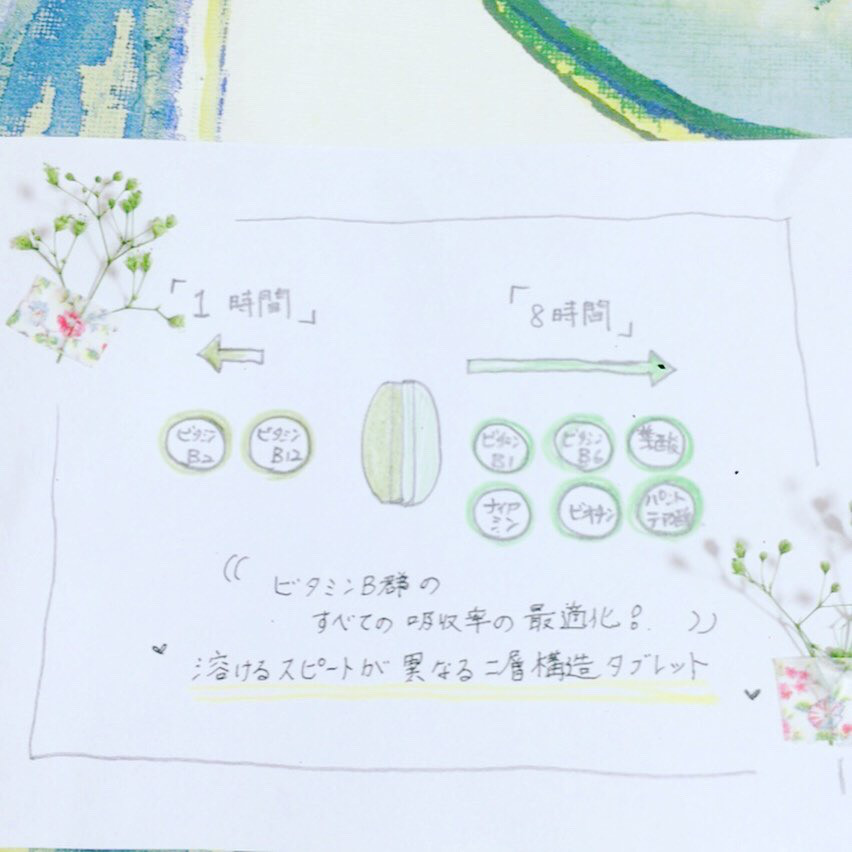 「1 時間」
「8時間」
ビタミンB2
ビタミンB12
ビタミンB1
ビタミンB6
葉酸
ナイアミン
ビオチン
パントテン酸
ビタミンB群の
すべての 吸収率の 最適化!
溶けるスピードが 異なる二層構造タブレット